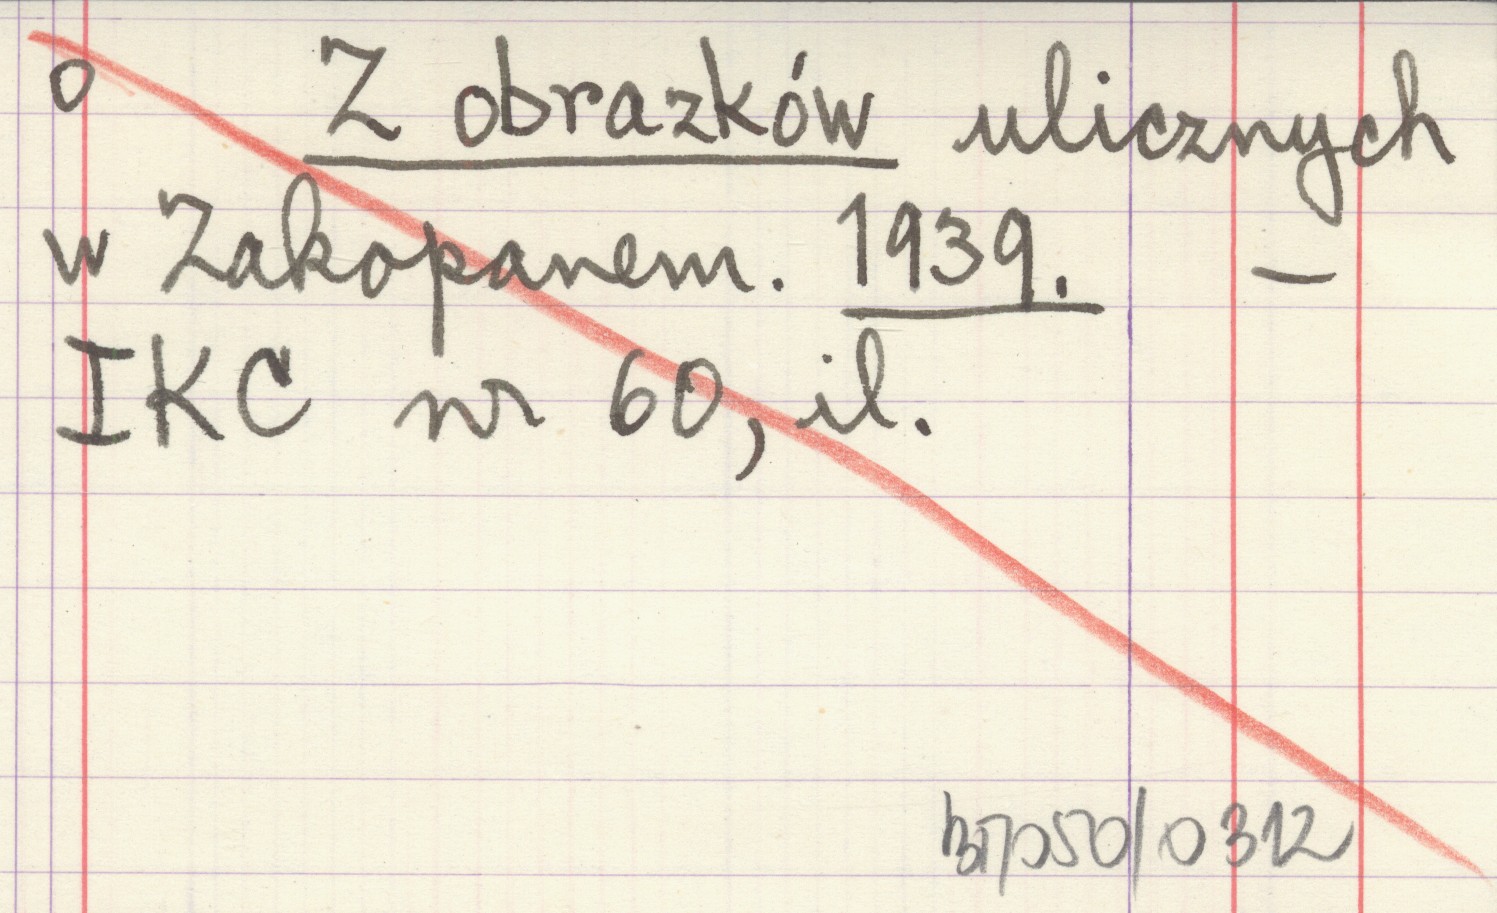 o Z obrazków ulicznych
w Zakopanem. 1939. —
IKC nr 60, il.